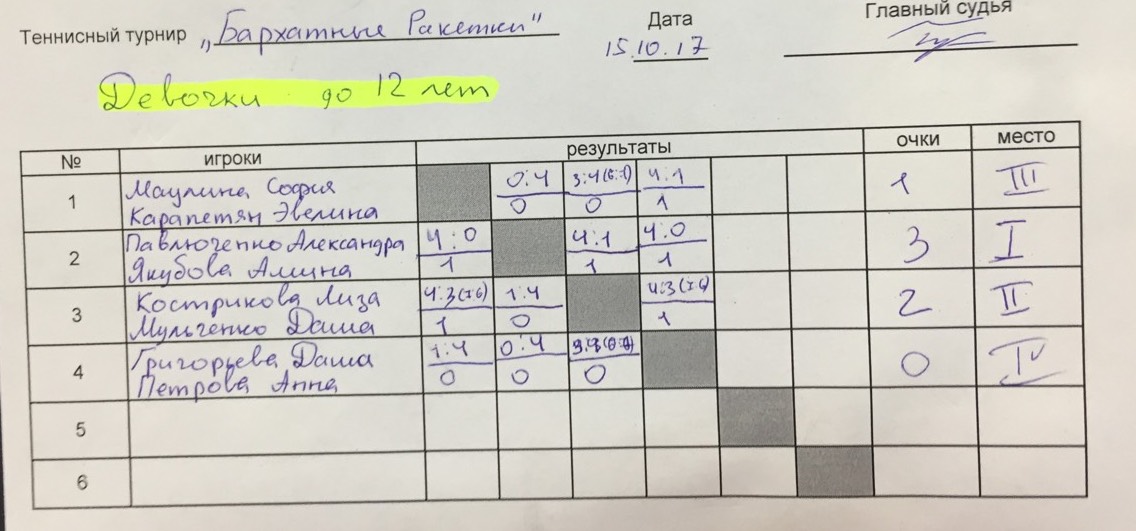 Теннисный турнир „Бархатные Ракетки"
Дата
15.10.17
Главный судья
Девочки до 12 лет
№ игроки результаты очки место
1 Маулина София Карапетян Эвелина 0:4 0 3:4(6:7) 0 4:1 1 1 III
2 Павлюченко Александра Якубова Амина 4:0 1 4:1 1 4:0 1 3 I
3 Кострикова Лиза Мульченко Даша 4:3(7:6) 1 1:4 0 4:3 1 2 II
4 Григорьева Даша Петрова Анна 1:4 0 0:4 0 0 0 IV
5
6